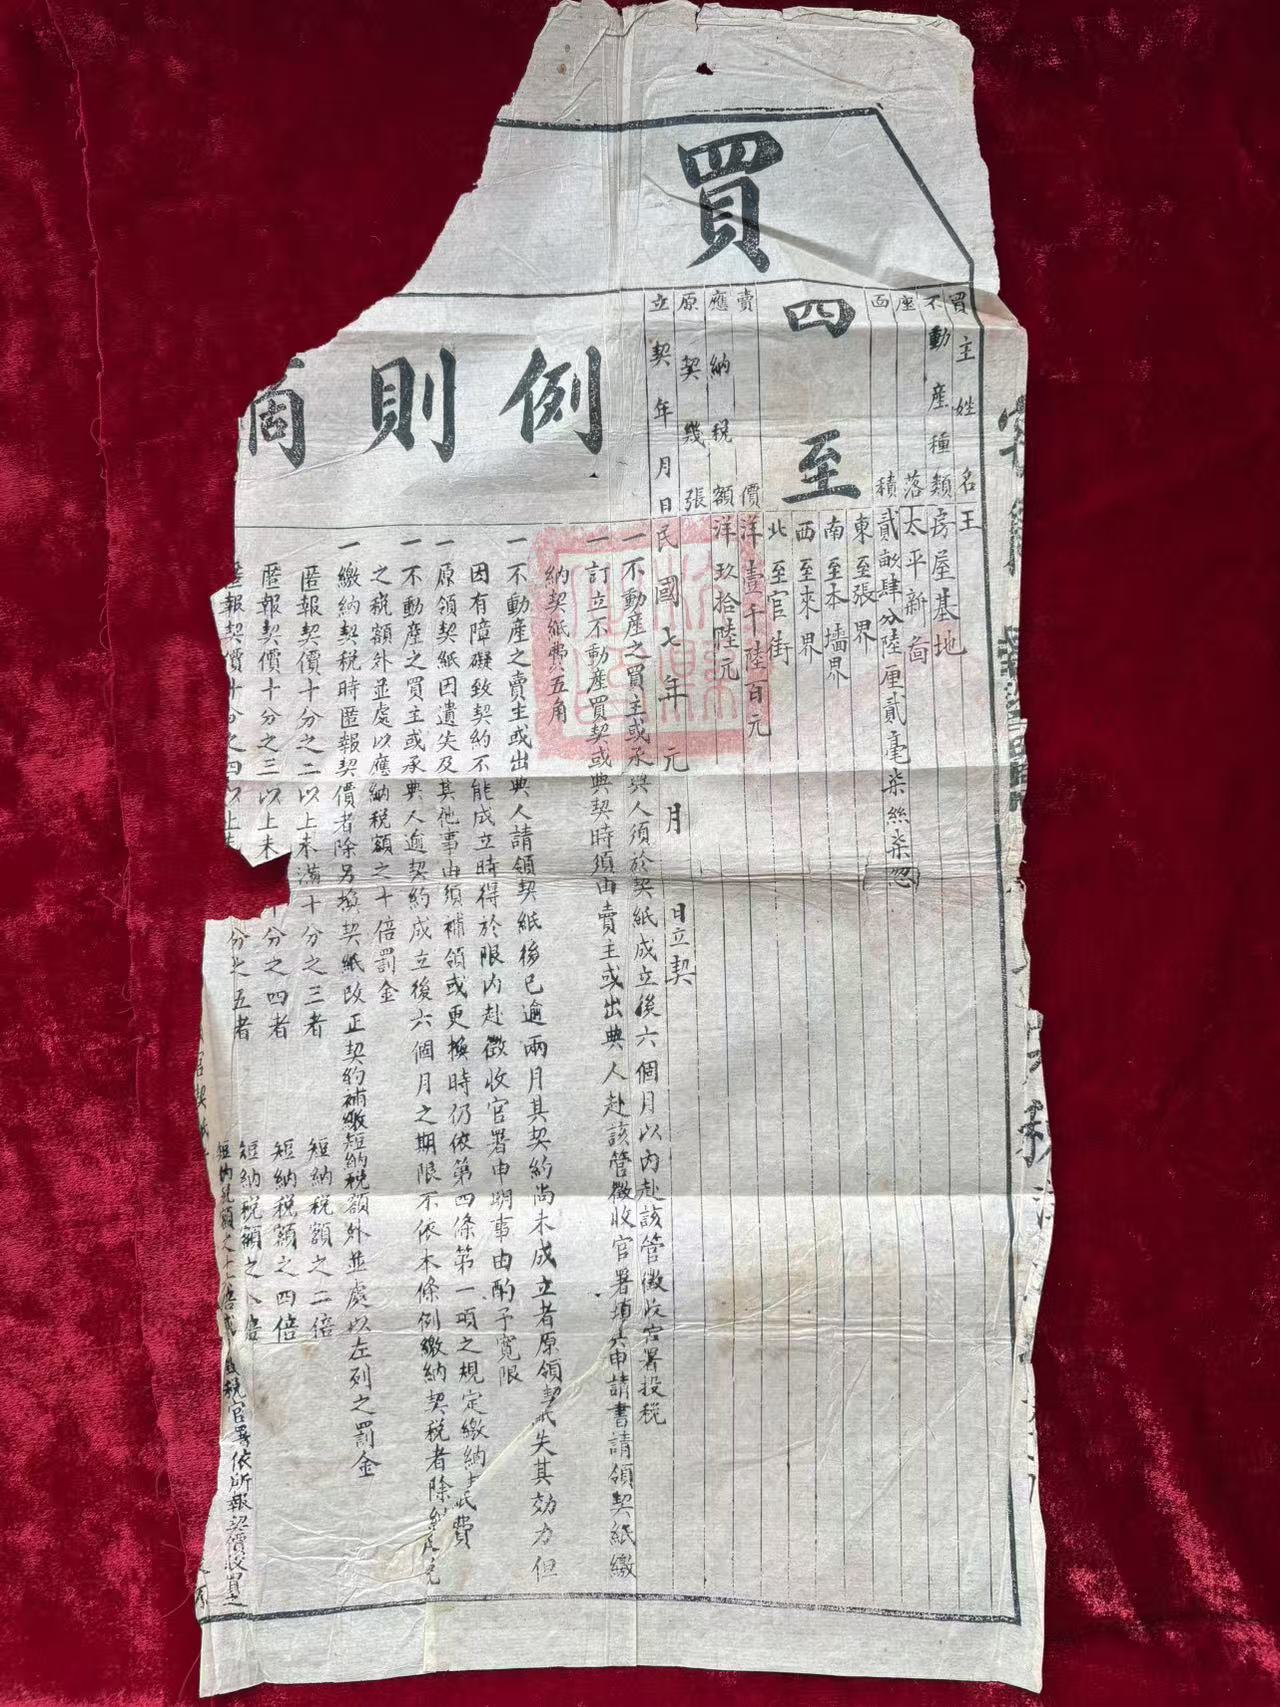 買
買主姓名 王
不動產種類 房屋基地
座落 太平新啚
面積 貳畝肆分陸厘貳毫柒絲柒忽
四至
東至張界
南至本墻界
西至來界
北至官街
賣價 洋壹千陸百元
應納稅額 洋玖拾陸元
原契幾張
立契年月日 民國七年元月 日立契
例則摘
一不動產之買主或承典人須於契紙成立後六個月以內赴該管徵收官署投稅
一訂立不動產買契或典契時須由賣主或出典人赴該管徵收官署填具申請書請領契紙繳
納契紙費五角
一不動產之賣主或出典人請領契紙後已逾兩月其契約尚未成立者原領契紙失其効力但
因有障礙致契約不能成立時得於限內赴徵收官署申明事由酌予寬限
一原領契紙因遺失及其他事由須補領或更換時仍依第四條第一項之規定繳納紙費
一不動產之買主或承典人逾契約成立後六個月之期限不依本條例繳納契稅者除納定稅
之稅額外並處以應納稅額之十倍罰金
一繳納契稅時匿報契價者除另換契紙改正契約補繳短納稅額外並處以左列之罰金
匿報契價十分之二以上未滿十分之三者 短納稅額之二倍
匿報契價十分之三以上未 十分之四者 短納稅額之四倍
匿報契價十分之四以上未 分之五者 短納稅額之八倍
短納稅額之十 倍或 稅官署依所報契價收買之
官契紙